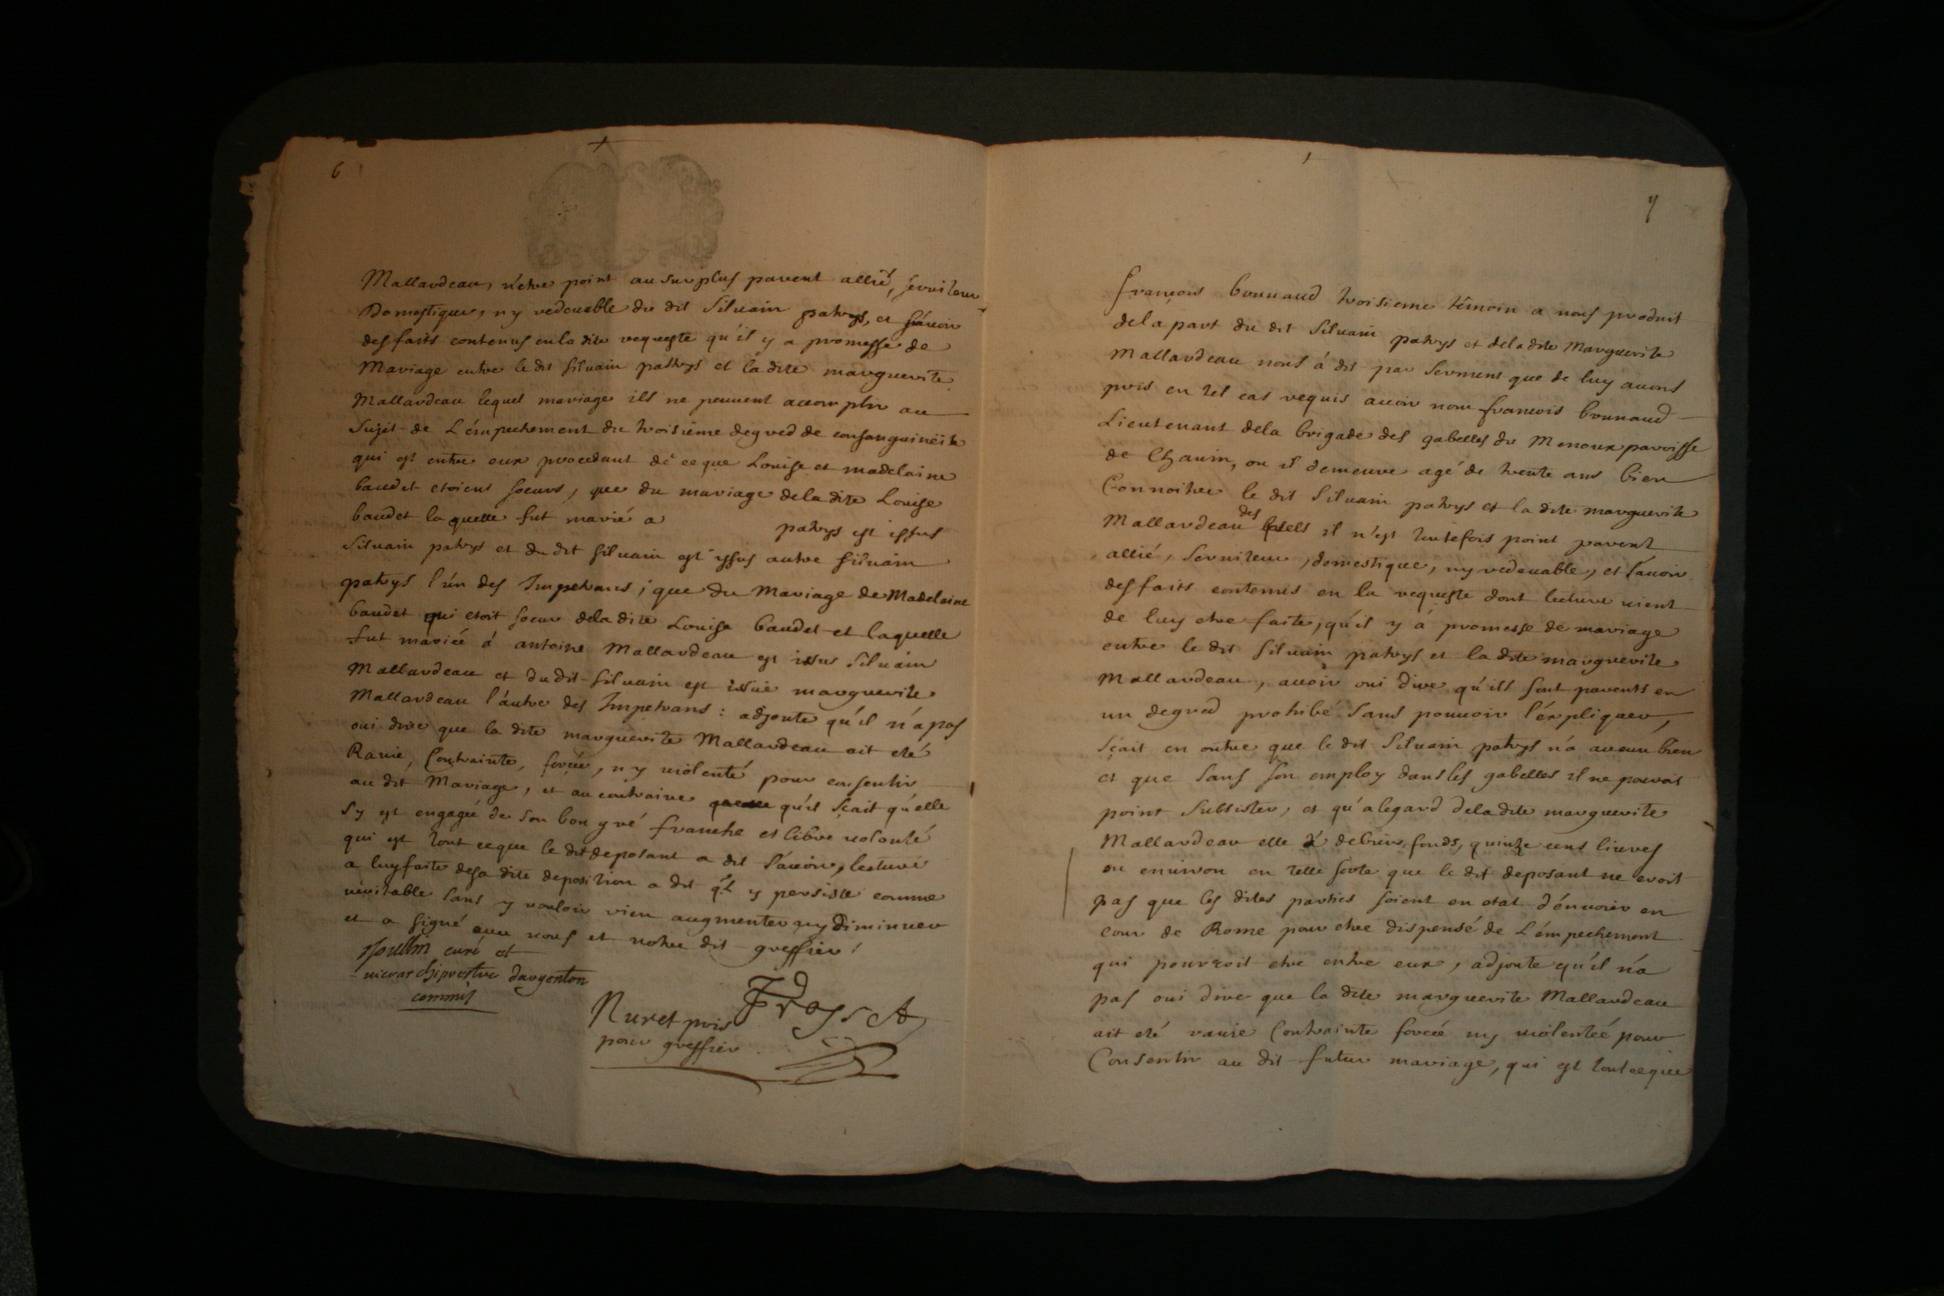 6
Mallardeau, n'etre point au surplus parent allié, serviteur
Domestique, ny redeuable du dit Siluain patrys, et sçauoir
des faits contenus en la dite requeste qu'il y a promesse de
Mariage entre le dit siluain patrys et la dite marguerite
Mallardeau lequel mariage ils ne peuuent accomplir au
Sujet de L'émpechement du troisiéme degred de consanguinéité
qui est entre eux procedant dé ce que Louise et madelaine
baudet etoient soeurs, que du mariage de la dite Louise
baudet la quelle fut marié a patrys est issus
Siluain patrys et du dit siluain est yssus autre siluain
patrys l'ún des Impetrans; que du Mariage de Madelaine
baudet qui etoit soeur dela dite Louise baudet et laquelle
fut mariée á antoine Mallardeau est issus Siluain
Mallardeau et du dit Siluain est issuë marguerite
Mallardeau l'autre des Impetrans : adjoute qu'il n'a pas
oui dire que la dite marguerite Mallardeau ait eté
Rauie, Contrainte, forcée, ny violenté pour consentir
au dit Mariage, et au contraire qu'il sçait qu'elle
s'y est engagée de son bon gré franche et libre volonté
qui est tout ce que le dit deposant a dit sáuoir, lecture
a luy faite de sa dite deposition a dit q'l y persiste comme
véritable sans y vouloir rien augmenter ny diminuer
et a signé auec nous et notre dit greffier /.
curé et
vicear chiprestre dargenton
commis
Nuret pris
pour greffier
7
françois bonnaud troisieme témoin a nous produit
dela part du dit Siluain patrys et dela dite Marguerite
Mallardeau nous á dit par serment que de luy auons
pris en tel cas requis auoir nom françois bonnaud
Lieutenant dela brigade des gabelles du Menoux paroisse
de Chauin, ou il demeure agé de trente ans bien
Connoitre le dit Siluain patrys et la dite marguerite
Mallardeau des quels il n'est toutefois point parent
allié, seruiteur, domestique, ny redeuable, et sauoir
des faits contenus en la requeste dont lecture uient
de luy etre faite, qu'il y á promesse de mariage
entre le dit siluain patrys et la dite marguerite
Mallardeau, auoir oui dire qu'ils sont parents en
un degred prohibé sans pouuoir l'éxpliquer,
sçait en outre que le dit Siluain patrys n'a aucun bien
et que sans son employ dans les gabelles il ne pouroit
point subsister, et qu'a legard dela dite marguerite
Mallardeau elle á debiens fonds, quinze cens liures
ou enuiron en telle sorte que le dit deposant ne croit
pas que les dites parties soient en etat d'énuoier en
cour de Rome pour etre dispensé de L'émpechement
qui pourroit etre entre eux, adjoute qu'il n'a
pas oui dire que la dite marguerite Mallardeau
ait eté rauie Contrainte forcée ny uiolentée pour
Consentir au dit futur mariage, qui est tout ce que